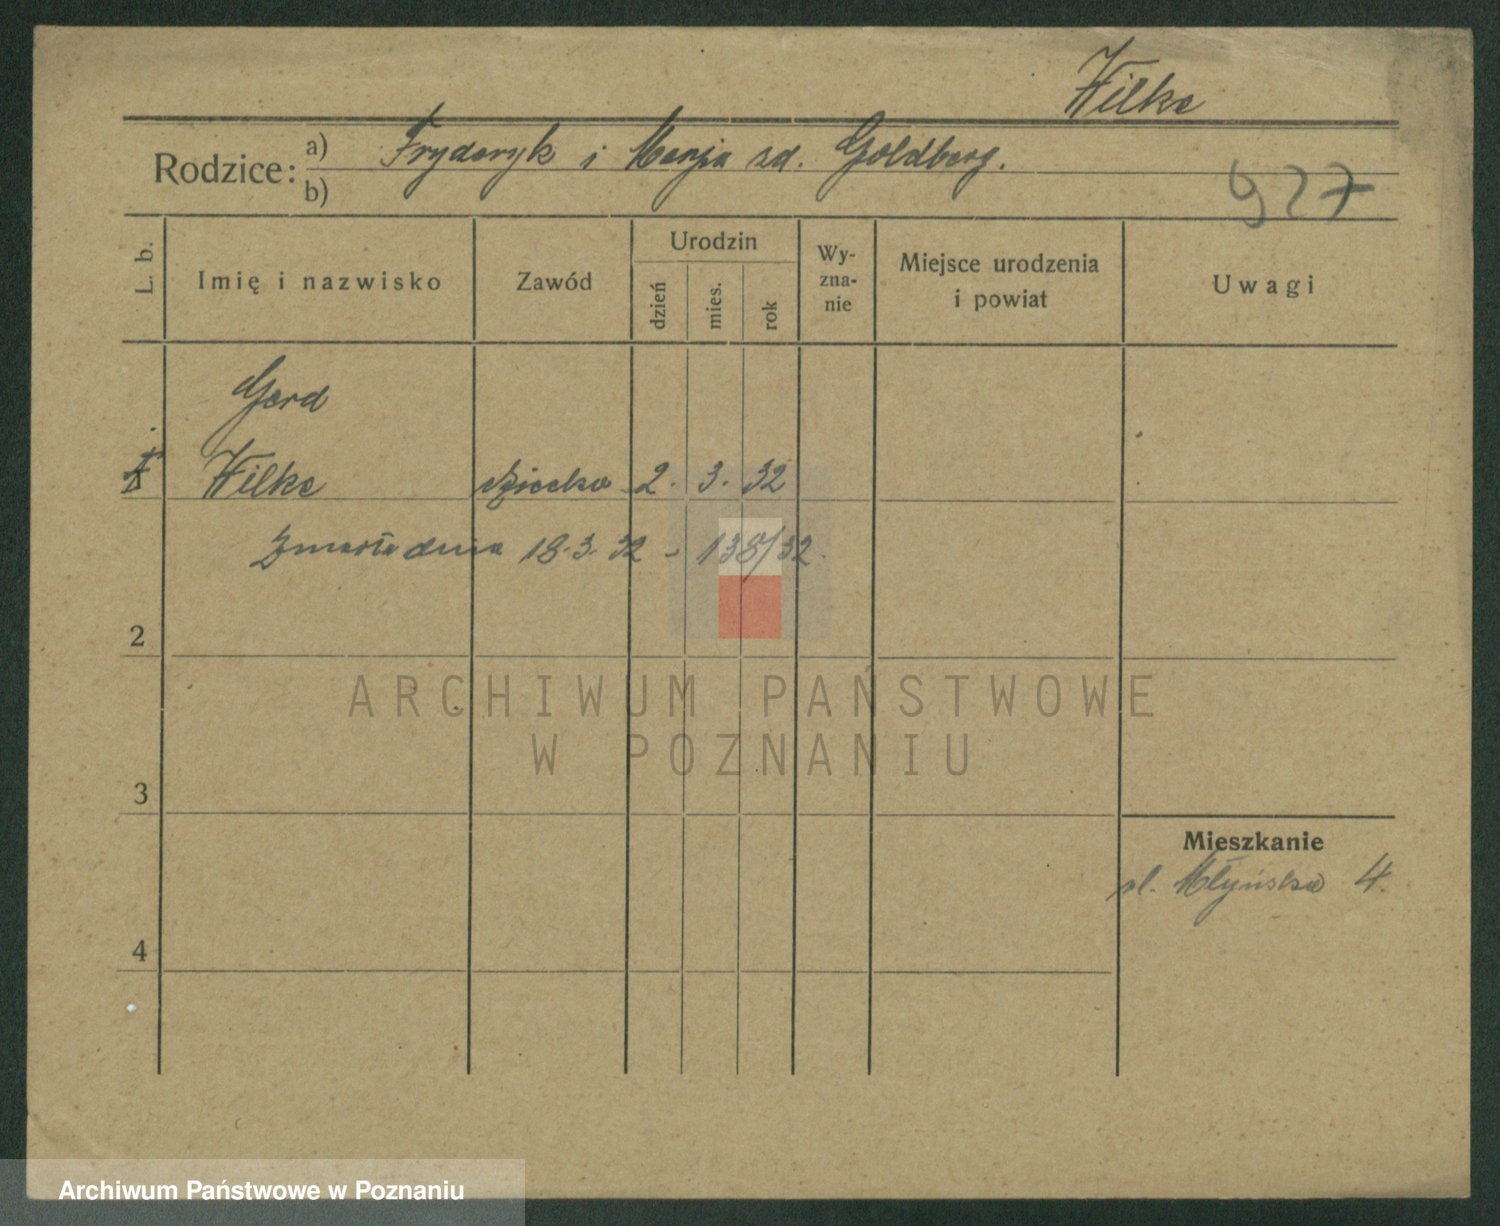 Wilke
Rodzice: a) Fryderyk i Marja zd. Goldberg.
b)
927
L. b.
Imię i nazwisko
Zawód
Urodzin
dzień
mies.
rok
Wy-
zna-
nie
Miejsce urodzenia
i powiat
Uwagi
Gerd
Wilke dziecko 2. 3. 32
Zmarło dnia 18.3.32 - 138/32.
2
ARCHIWUM PAŃSTWOWE
W POZNANIU
3
Mieszkanie
ul. Młyńska 4.
4
Archiwum Państwowe w Poznaniu